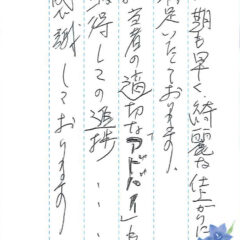 期も早く綺麗な仕上がりに
足いたております。
当者の適切な「アドバイス」も
得しての進捗・・・
感謝しております